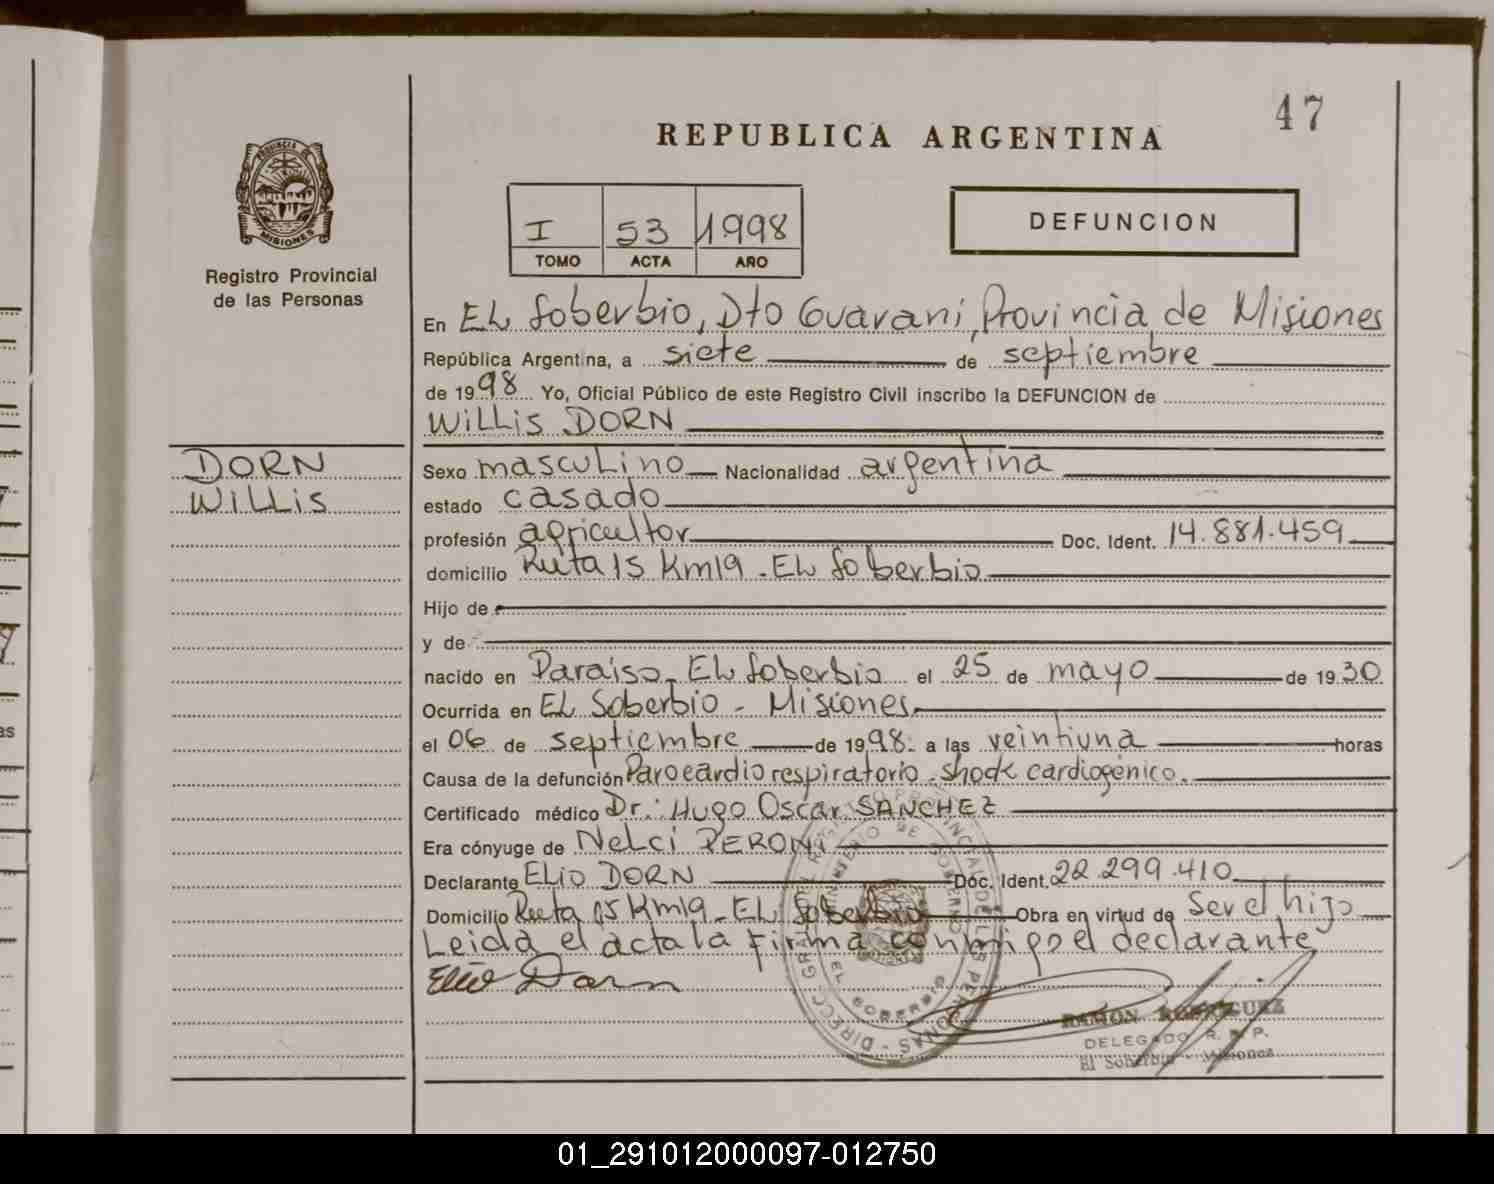 47
REPUBLICA ARGENTINA
PROVINCIA DE
MISIONES
Registro Provincial
de las Personas
I 53 1998
TOMO ACTA AÑO
DEFUNCION
En EL Soberbio, Dto Guaraní, Provincia de Misiones
República Argentina, a siete de septiembre
de 1998 Yo, Oficial Público de este Registro Civil inscribo la DEFUNCION de
WILLIS DORN
DORN
WILLIS
Sexo masculino Nacionalidad argentina
estado casado
profesión agricultor Doc. Ident. 14.881.459
domicilio Ruta 15 Km19. EL Soberbio
Hijo de
y de
nacido en Paraíso, EL Soberbio el 25 de mayo de 1930
Ocurrida en EL Soberbio - Misiones
el 06 de septiembre de 1998. a las veintiuna horas
Causa de la defunción Parocardiorespiratorio. shock cardiogénico.
Certificado médico Dr.: Hugo Oscar SANCHEZ
Era cónyuge de Nelci PERONI
Declarante ELIO DORN Doc. Ident. 22.299.410
Domicilio Ruta 15 Km19. EL Soberbio Obra en virtud de Ser el hijo
Leida el acta la firma conmigo el declarante
Elio Dorn
MINISTERIO DE GOBIERNO
EL SOBERBIO
RAMON RODRIGUEZ
DELEGADO R. P. P.
El Soberbio - Misiones
01_291012000097-012750